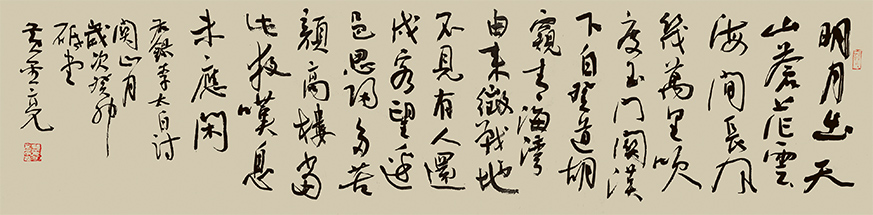 明月出天
山蒼茫雲
海間長風
幾萬里吹
度玉門關漢
下白登道胡
窺青海灣
由来徵戰地
不見有人還
戍客望邊
邑思歸多苦
顏高樓當
此夜嘆息
未應閑
右錄李太白詩
關山月
歲次癸卯